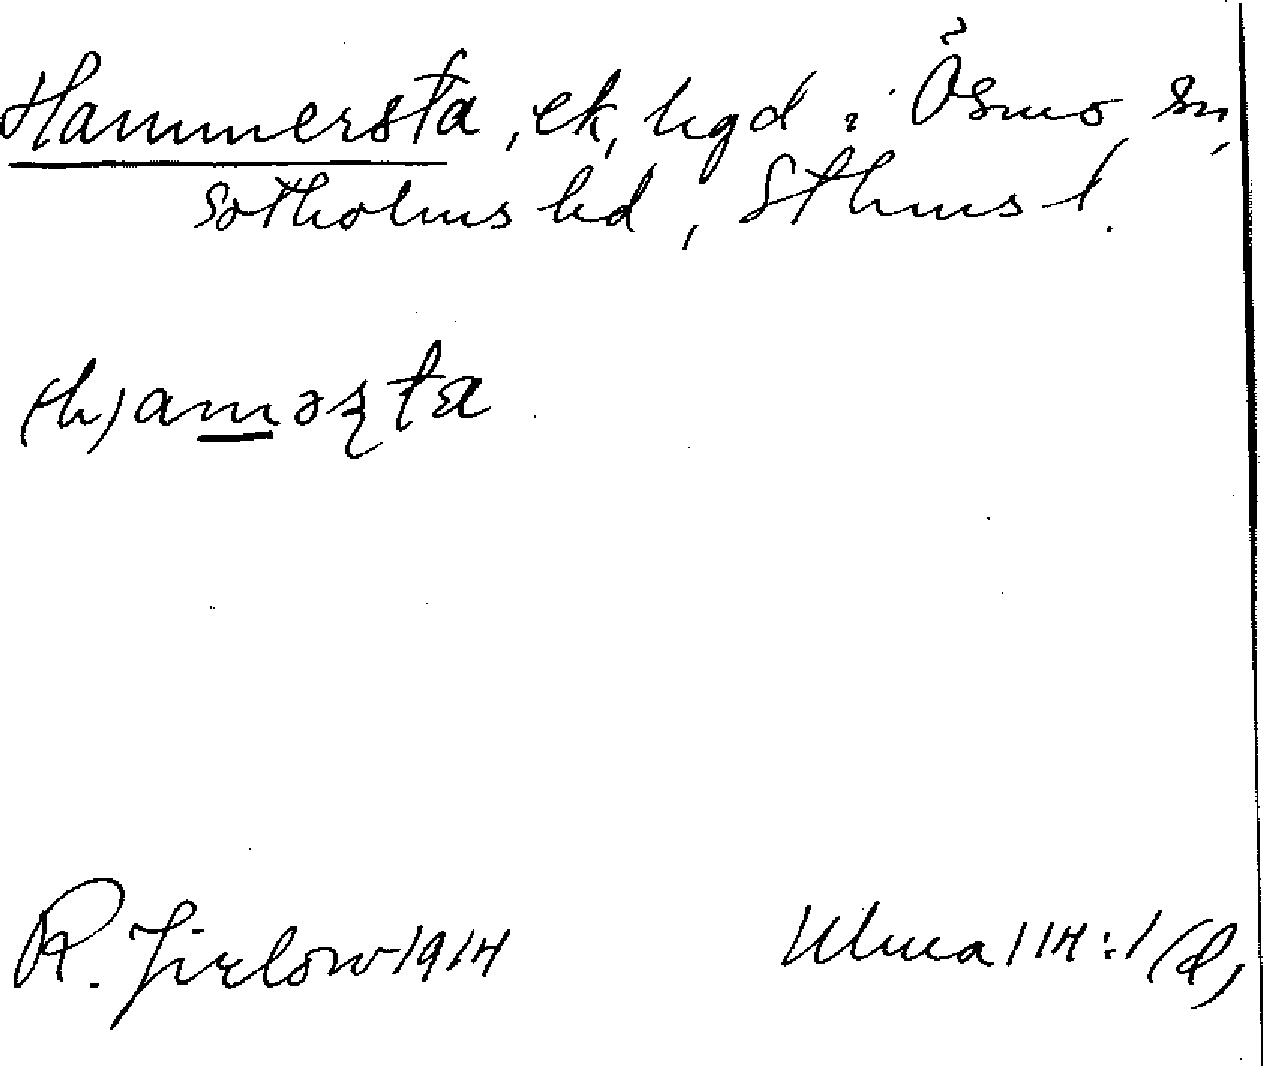 Hammersta, ek, hgd i Ösmo sn,
Sotholms hd, Sthms l.
(h)aməʂta
R. Jirlow 1914
Ulma 114:1 (d)